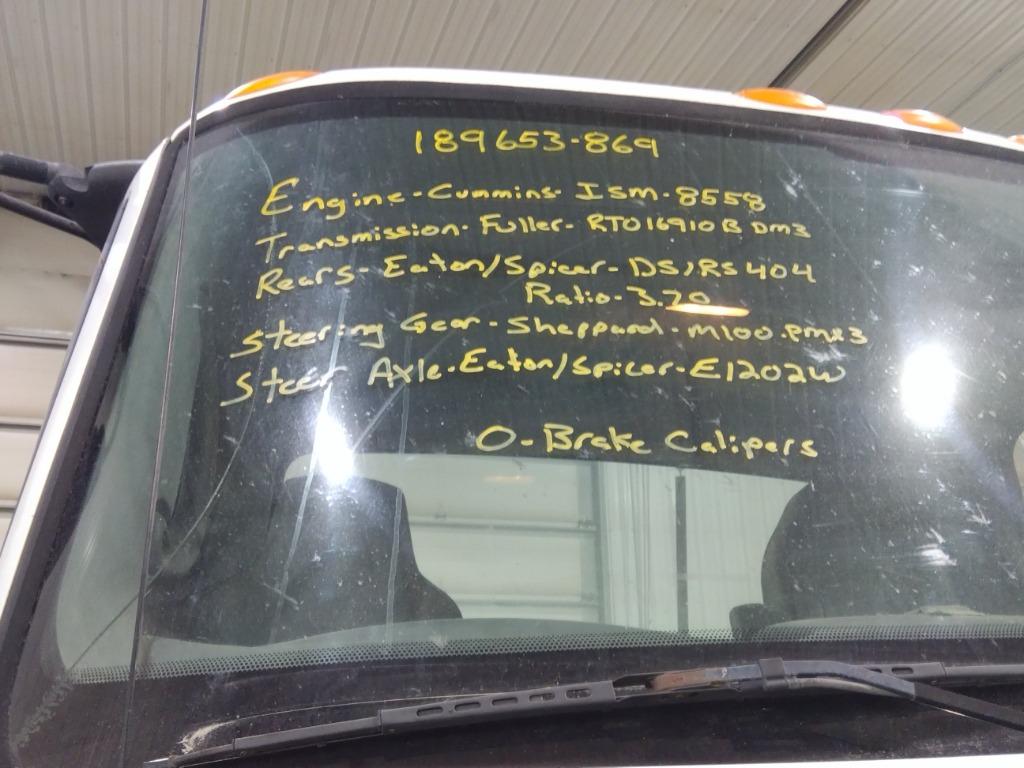 189653-869
Engine-Cummins-Ism-8558
Transmission-Fuller-RTO16910B Dm3
Rears-Eaton/Spicer-DS,RS404
Ratio-3.70
Steering Gear-Sheppard-M100.PMX3
Steer Axle-Eaton/Spicer-E1202W
0-Brake Calipers